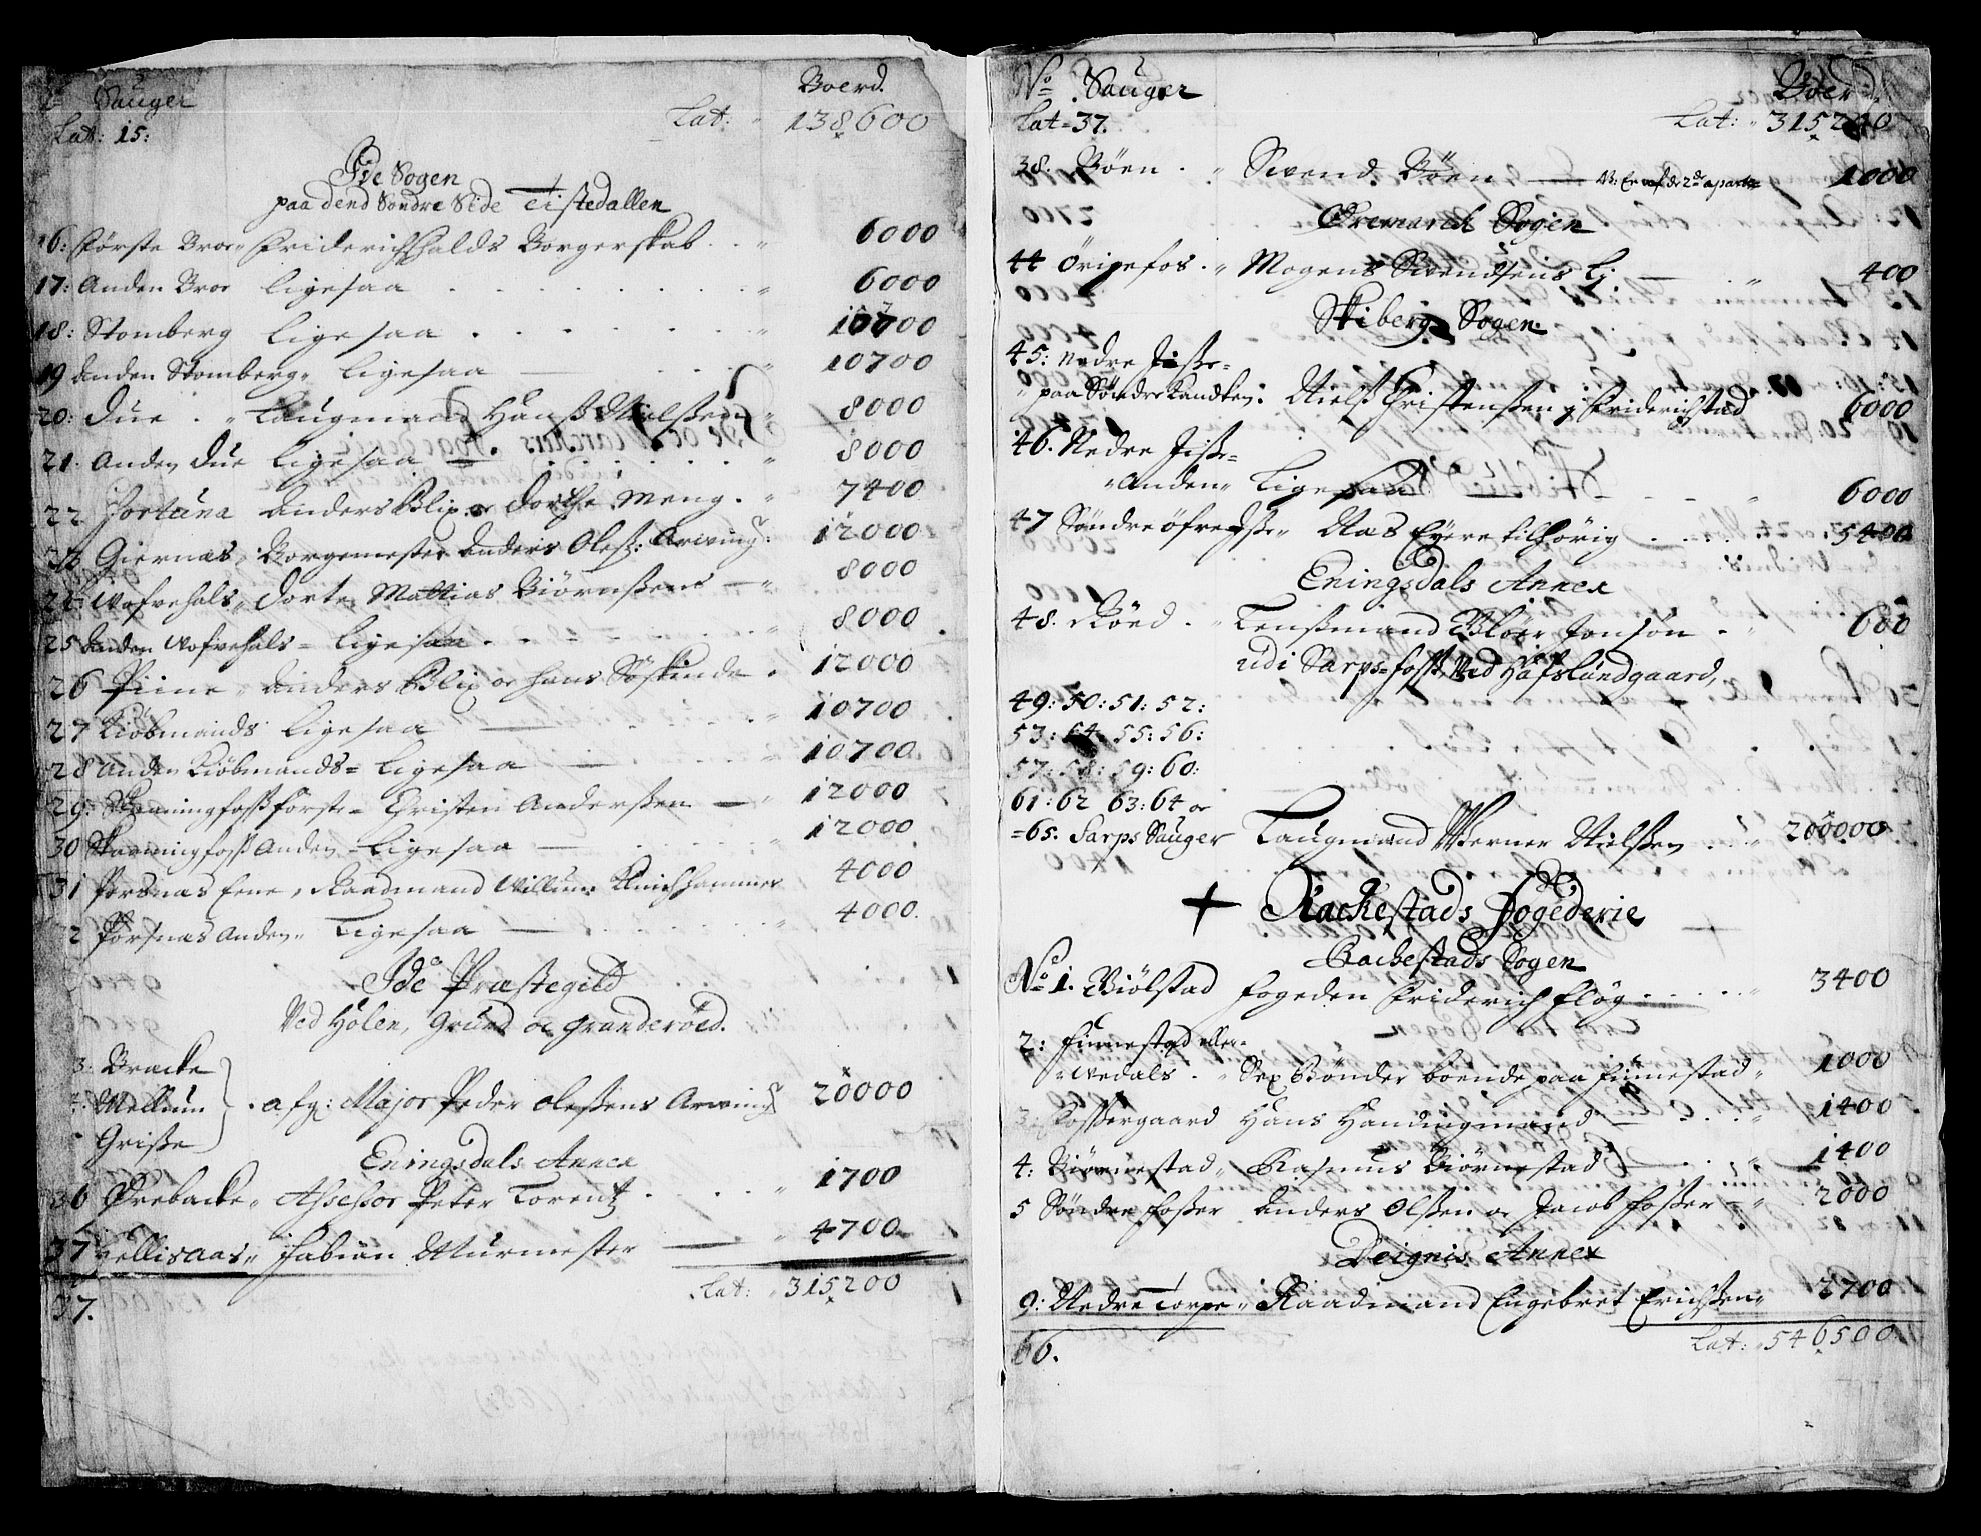 Sauger Boerd.
Lat: 15: Lat: 138600
Ide Sogen
paa dend Søndre Side Tistedallen
16: Første Broe Friderichshalds Borgerskab 6000
17: Anden Broe ligesaa 6000
18: Stomberg ligesaa 10700
19 Anden Stomberg ligesaa 10700
20: Due Laugmand Hans Nielssen 8000
21: Anden Due ligesaa 8000
22 Fortuna Anders Blix oc Dorthe Meng. 7400
23 Giernas, Borgemester Anders Oless: Arving 12000
24: Wofvehals, Dorte Mattias Biørnssens 8000
25 Anden Wofvehals ligesaa 8000
26 Piine Anders Blix oc hans Søskinde 12000
27 Kiøbmands ligesaa 10700
28 Anden Kiøbmands ligesaa 10700
29: Skaaningfoss første Christen Anderssen 12000
30 Skaaningfoss Anden ligesaa 12000
31 Porsnas Eene, Raadmand Willum 4000
32 Porsnas Anden ligesaa 4000.
Ide Præstegield
Ved Hølen, Grund oc Granderøed.
3: Bracke
Mellum afg: Major Peder Olessens Arving 20000
Grisse
Eningsdals Annex
36 Ørebacke Assessor Peter Lorentz 1700
37 Hellisaas Fabian Murmester 4700
37. Lat: 315200
No Sauger Boerd
Lat 37. Lat: 315200
38. Bøen Swend Bøen 1000
Øremarck Sogen
44 Ørigefos Mogens Swendsens 400
Skiberg Sogen
45: Nedre Tisse
paa Søndre Kandten: Niels Christenssen i Friderichstad 6000
46. Nedre Tisse
Anden Ligesaa 6000
47 Søndre Nas Eyere tilhørig 5400
Eningsdals Annex
48. Røed Lenssmand Jonsøn 600
udi Sarps-foss, Ved Hafslundgaard,
49: 50: 51: 52:
53: 54: 55: 56:
57: 58: 59: 60:
61: 62 63: 64 oc
65. Sarps Sauger Laugmand Werner Nielssen 200000
+ Rackestads Fogederie
Rackestads Sogen
No 1. Biølstad Fogeden Friderich Fløg 3400
2: Finnestad eller
Wedals Sex Bønder boende paa Finnestad 1000
3: Fossergaard Hans Handingmand 1400
4: Biørnestad Rasmus Biørnestad 1400
5 Søndre Fosser Anders Olssen oc Jacob Fosser 2000
Deignis Annex
9: Nedre Torpe Raadmand Engebret Erichssen 2700
66. Lat: 546500